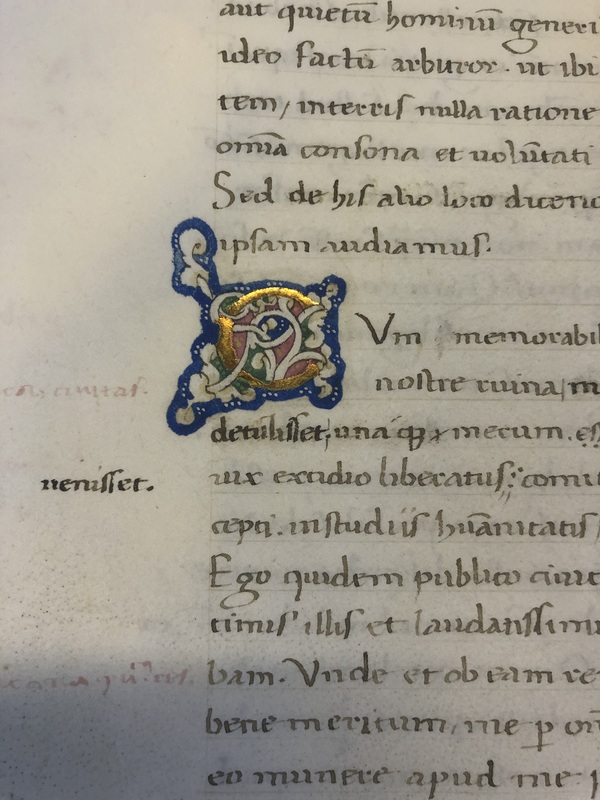 aut quietū hominū generi
ideo factū arbitror. ut ibi
tem, interris nulla ratione
om̄ia consona et uolūtati
Sed de his alio loco
ipsam audiamus.
Vm memorabil
nostre ruina, m
detulisset, una mecum.
uenisset.
uix excidio liberatus: comi
cepti. instudiis hūanitatis
Ego quidem publico ciui
timis illis et laudatissimi
bam. Vnde et ob eam re
bene meritum, me p̱
eo munere apud me